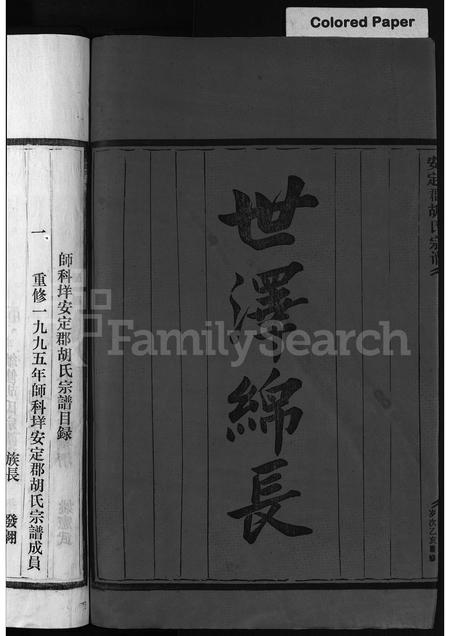 Colored Paper
安定郡胡氏宗譜
歲次乙亥重修
世澤綿長
師科垟安定郡胡氏宗譜目録
一、重修一九九五年師科垟安定郡胡氏宗譜成員
族長 發翔
FamilySearch